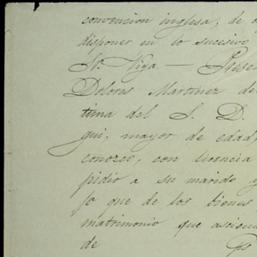 convencion inglesa, de
disponer en lo sucesivo
Sr. Vega — Prese
Dolores Martinez de
tima del S. D.
gui, mayor de edad,
conozco, con licencia
pidió a su marido y
fo que de los bienes
matrimonio que
de ps